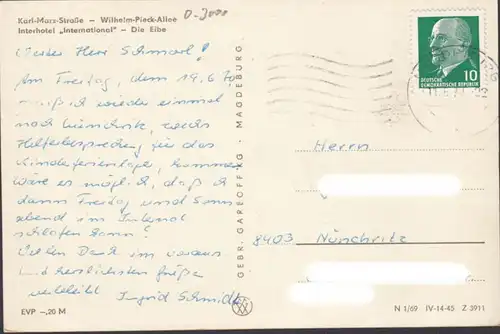 Karl-Marx-Straße – Wilhelm-Pieck-Allee
Interhotel „International" – Die Elbe
Lieber Herr Schmorl!
Am Freitag, dem 19.6.70
muß ich wieder einmal
nach Nünchritz, wegen
Helferbesprechung für das
Kinderferienlager, kommen
Wäre es möglich, daß ich
dann Freitag und Sonn-
abend im Internat
schlafen kann?
Vielen Dank im voraus
und herzlichsten Grüße
verbleibt Ingrid Schmidt
EVP –,20 M
GEBR. GAREOFFING · MAGDEBURG
10
DEUTSCHE
DEMOKRATISCHE REPUBLIK
Herrn
8403 Nünchritz
N 1/69 IV-14-45 Z 3911